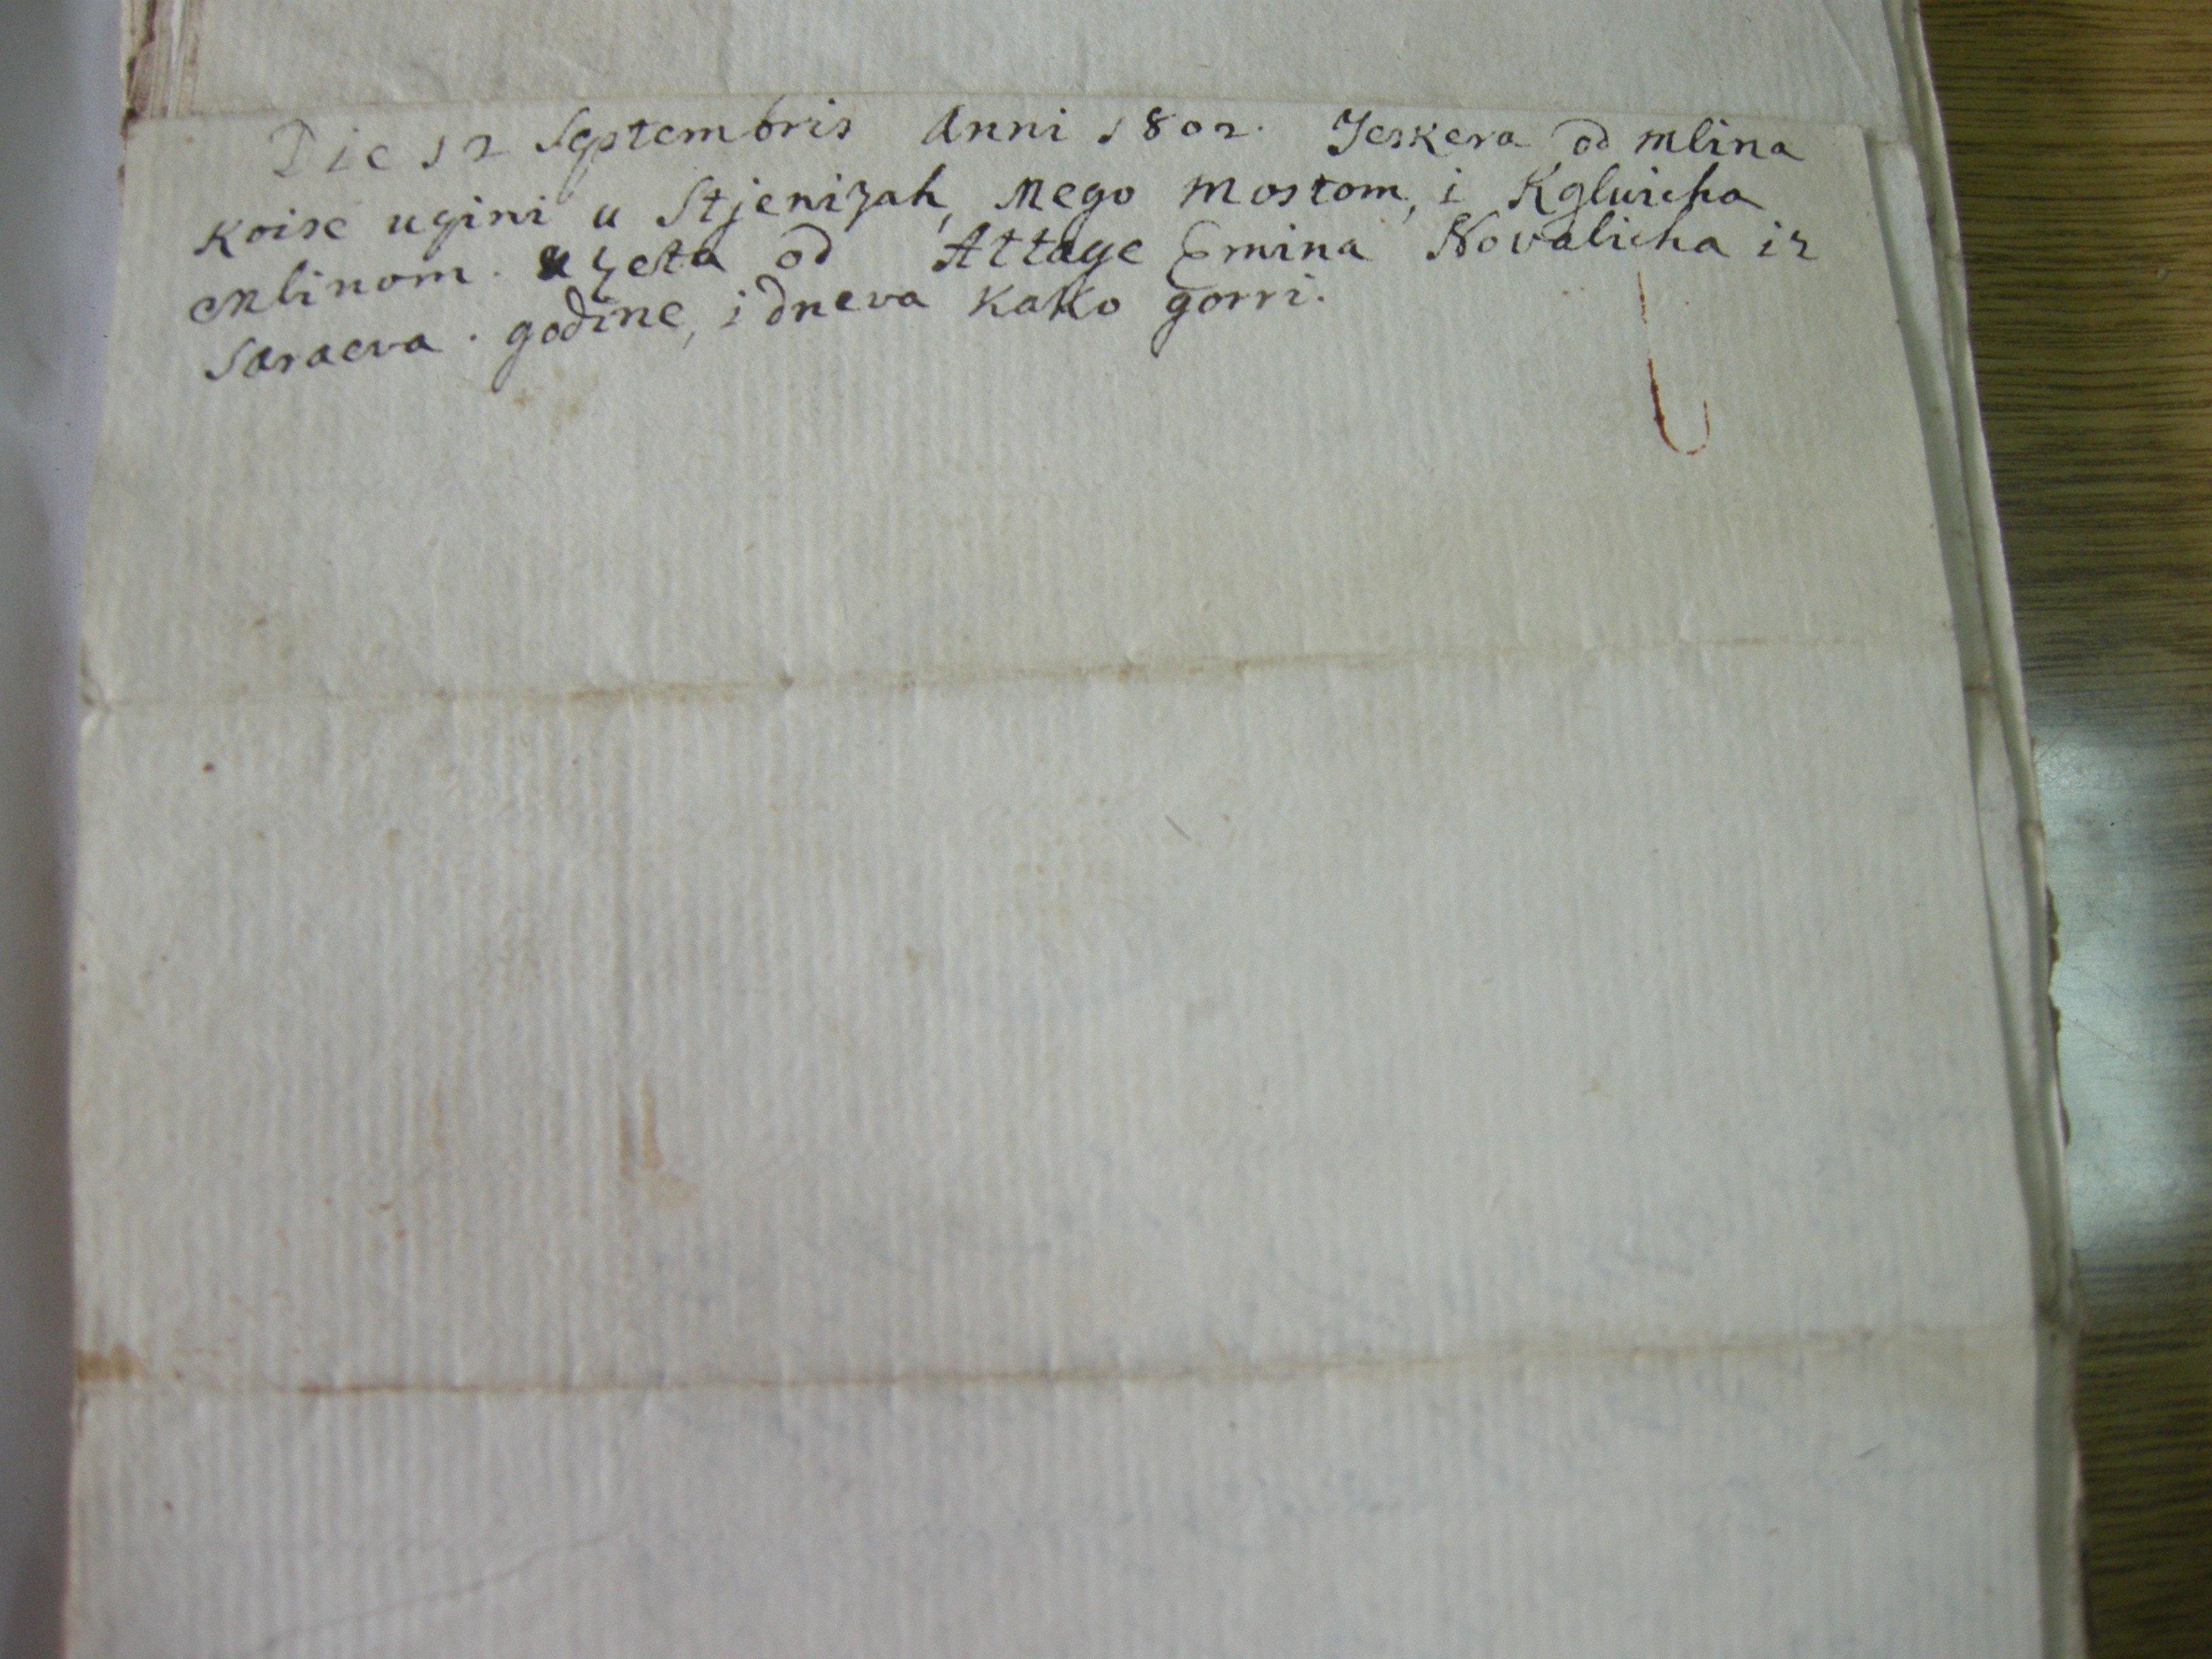 Die 12 Septembris Anni 1802. Jeskera od mlina
Koise ugini u Stjenizah, Mego mostom, i Kgluicha
Mlinom. uzeta od Attage Emina Novalicha iz
Saraeva. godine, i dneva Kako gorri.